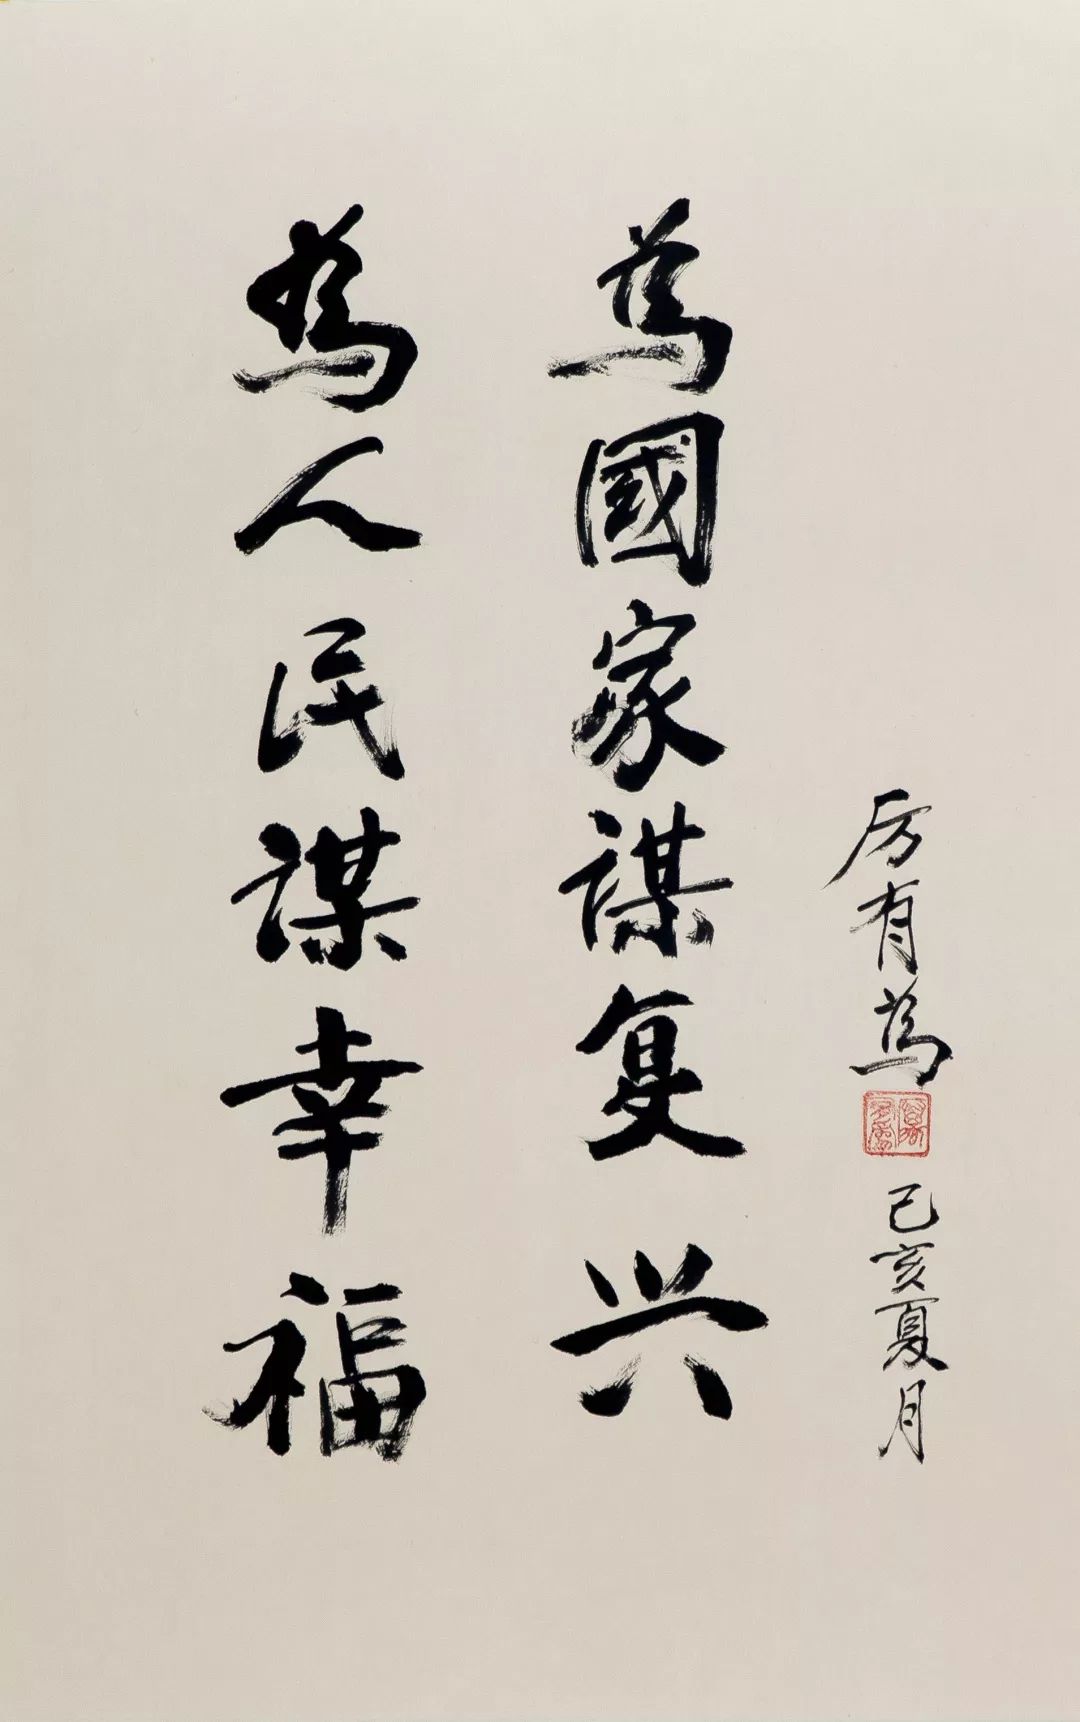 厉有為
己亥夏月
為國家謀复兴
為人民謀幸福